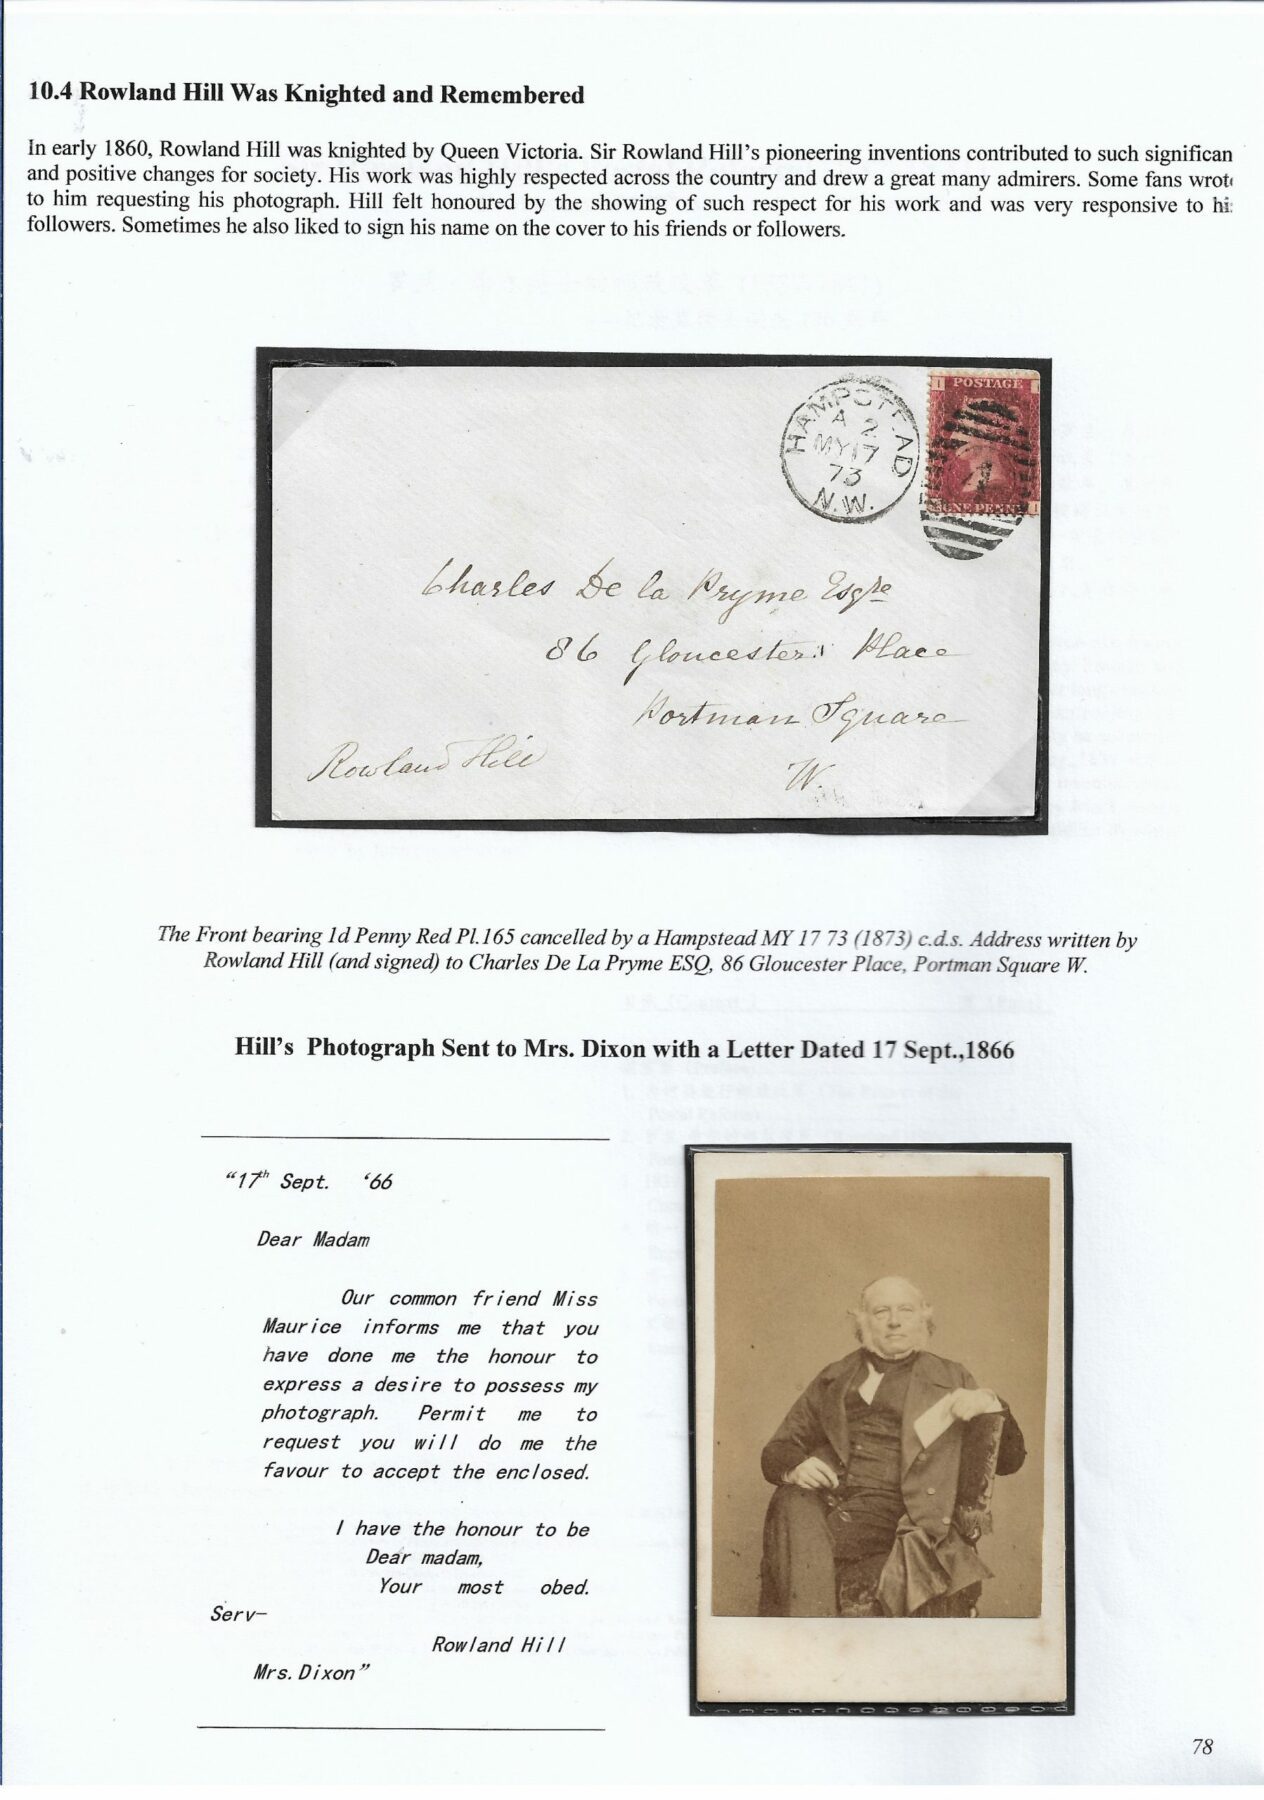 10.4 Rowland Hill Was Knighted and Remembered
In early 1860, Rowland Hill was knighted by Queen Victoria. Sir Rowland Hill's pioneering inventions contributed to such significan
and positive changes for society. His work was highly respected across the country and drew a great many admirers. Some fans wrot
to him requesting his photograph. Hill felt honoured by the showing of such respect for his work and was very responsive to hi
followers. Sometimes he also liked to sign his name on the cover to his friends or followers.
HAMPSTEAD
A 2
MY 17
73
N.W.
POSTAGE
ONE PENNY
I I
Charles De la Pryme Esqre
86 Gloucester Place
Portman Square
W.
Rowland Hill
The Front bearing 1d Penny Red Pl.165 cancelled by a Hampstead MY 17 73 (1873) c.d.s. Address written by
Rowland Hill (and signed) to Charles De La Pryme ESQ, 86 Gloucester Place, Portman Square W.
Hill's Photograph Sent to Mrs. Dixon with a Letter Dated 17 Sept.,1866
"17th Sept. '66
Dear Madam
Our common friend Miss
Maurice informs me that you
have done me the honour to
express a desire to possess my
photograph. Permit me to
request you will do me the
favour to accept the enclosed.
I have the honour to be
Dear madam,
Your most obed.
Serv-
Rowland Hill
Mrs. Dixon"
78